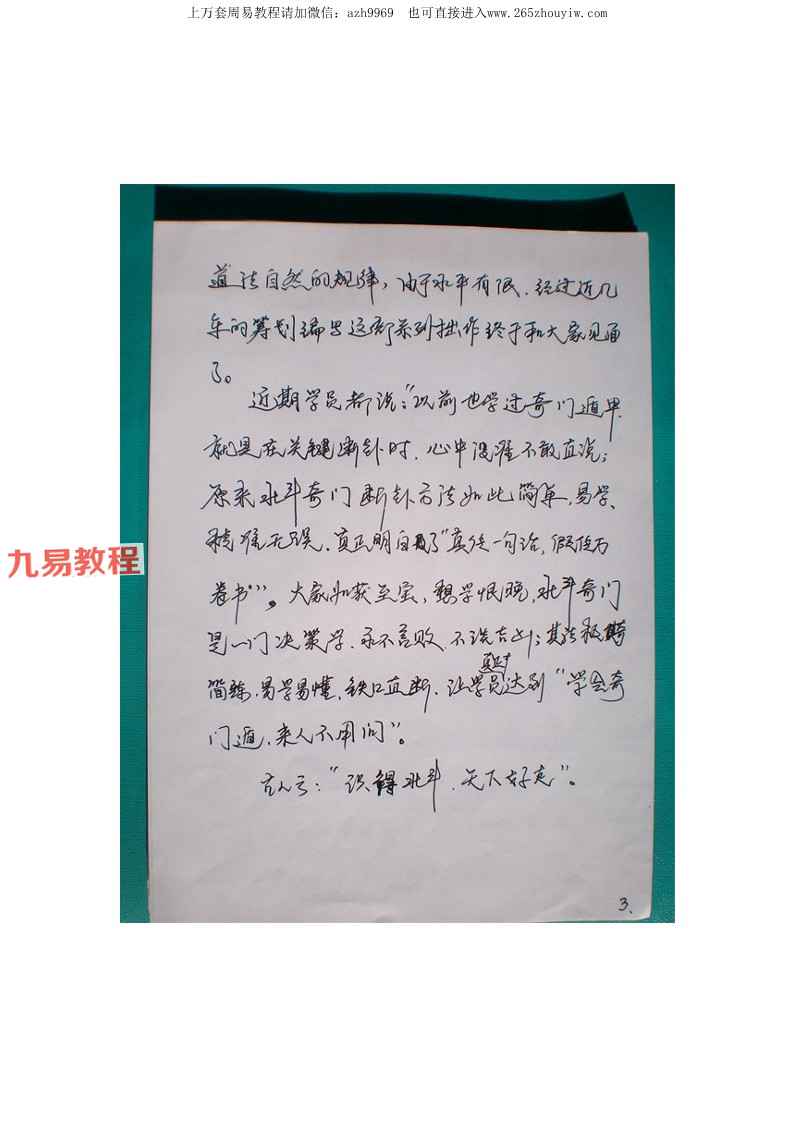 上万套周易教程请加微信：azh9969 也可直接进入www.265zhouyiw.com
道法自然的规律，由于水平有限、经过近几
年的筹划编写这部系列拙作终于和大家见面
了。
近期学员都说：“以前也学过奇门遁甲，
就是在关键断卦时，心中没准不敢直说；
原来北斗奇门断卦方法如此简单，易学、
精准无误，真正明白了“真传一句话，假传万
卷书””。大家如获至宝，想学恨晚，北斗奇门
是一门决策学，永不言败、不说吉凶；其法极
简练，易学易懂，铁口直断，让学员真正达到“学会奇
门遁，来人不用问”。
古人云：“识得北斗，天下好走”。
九易教程
3、